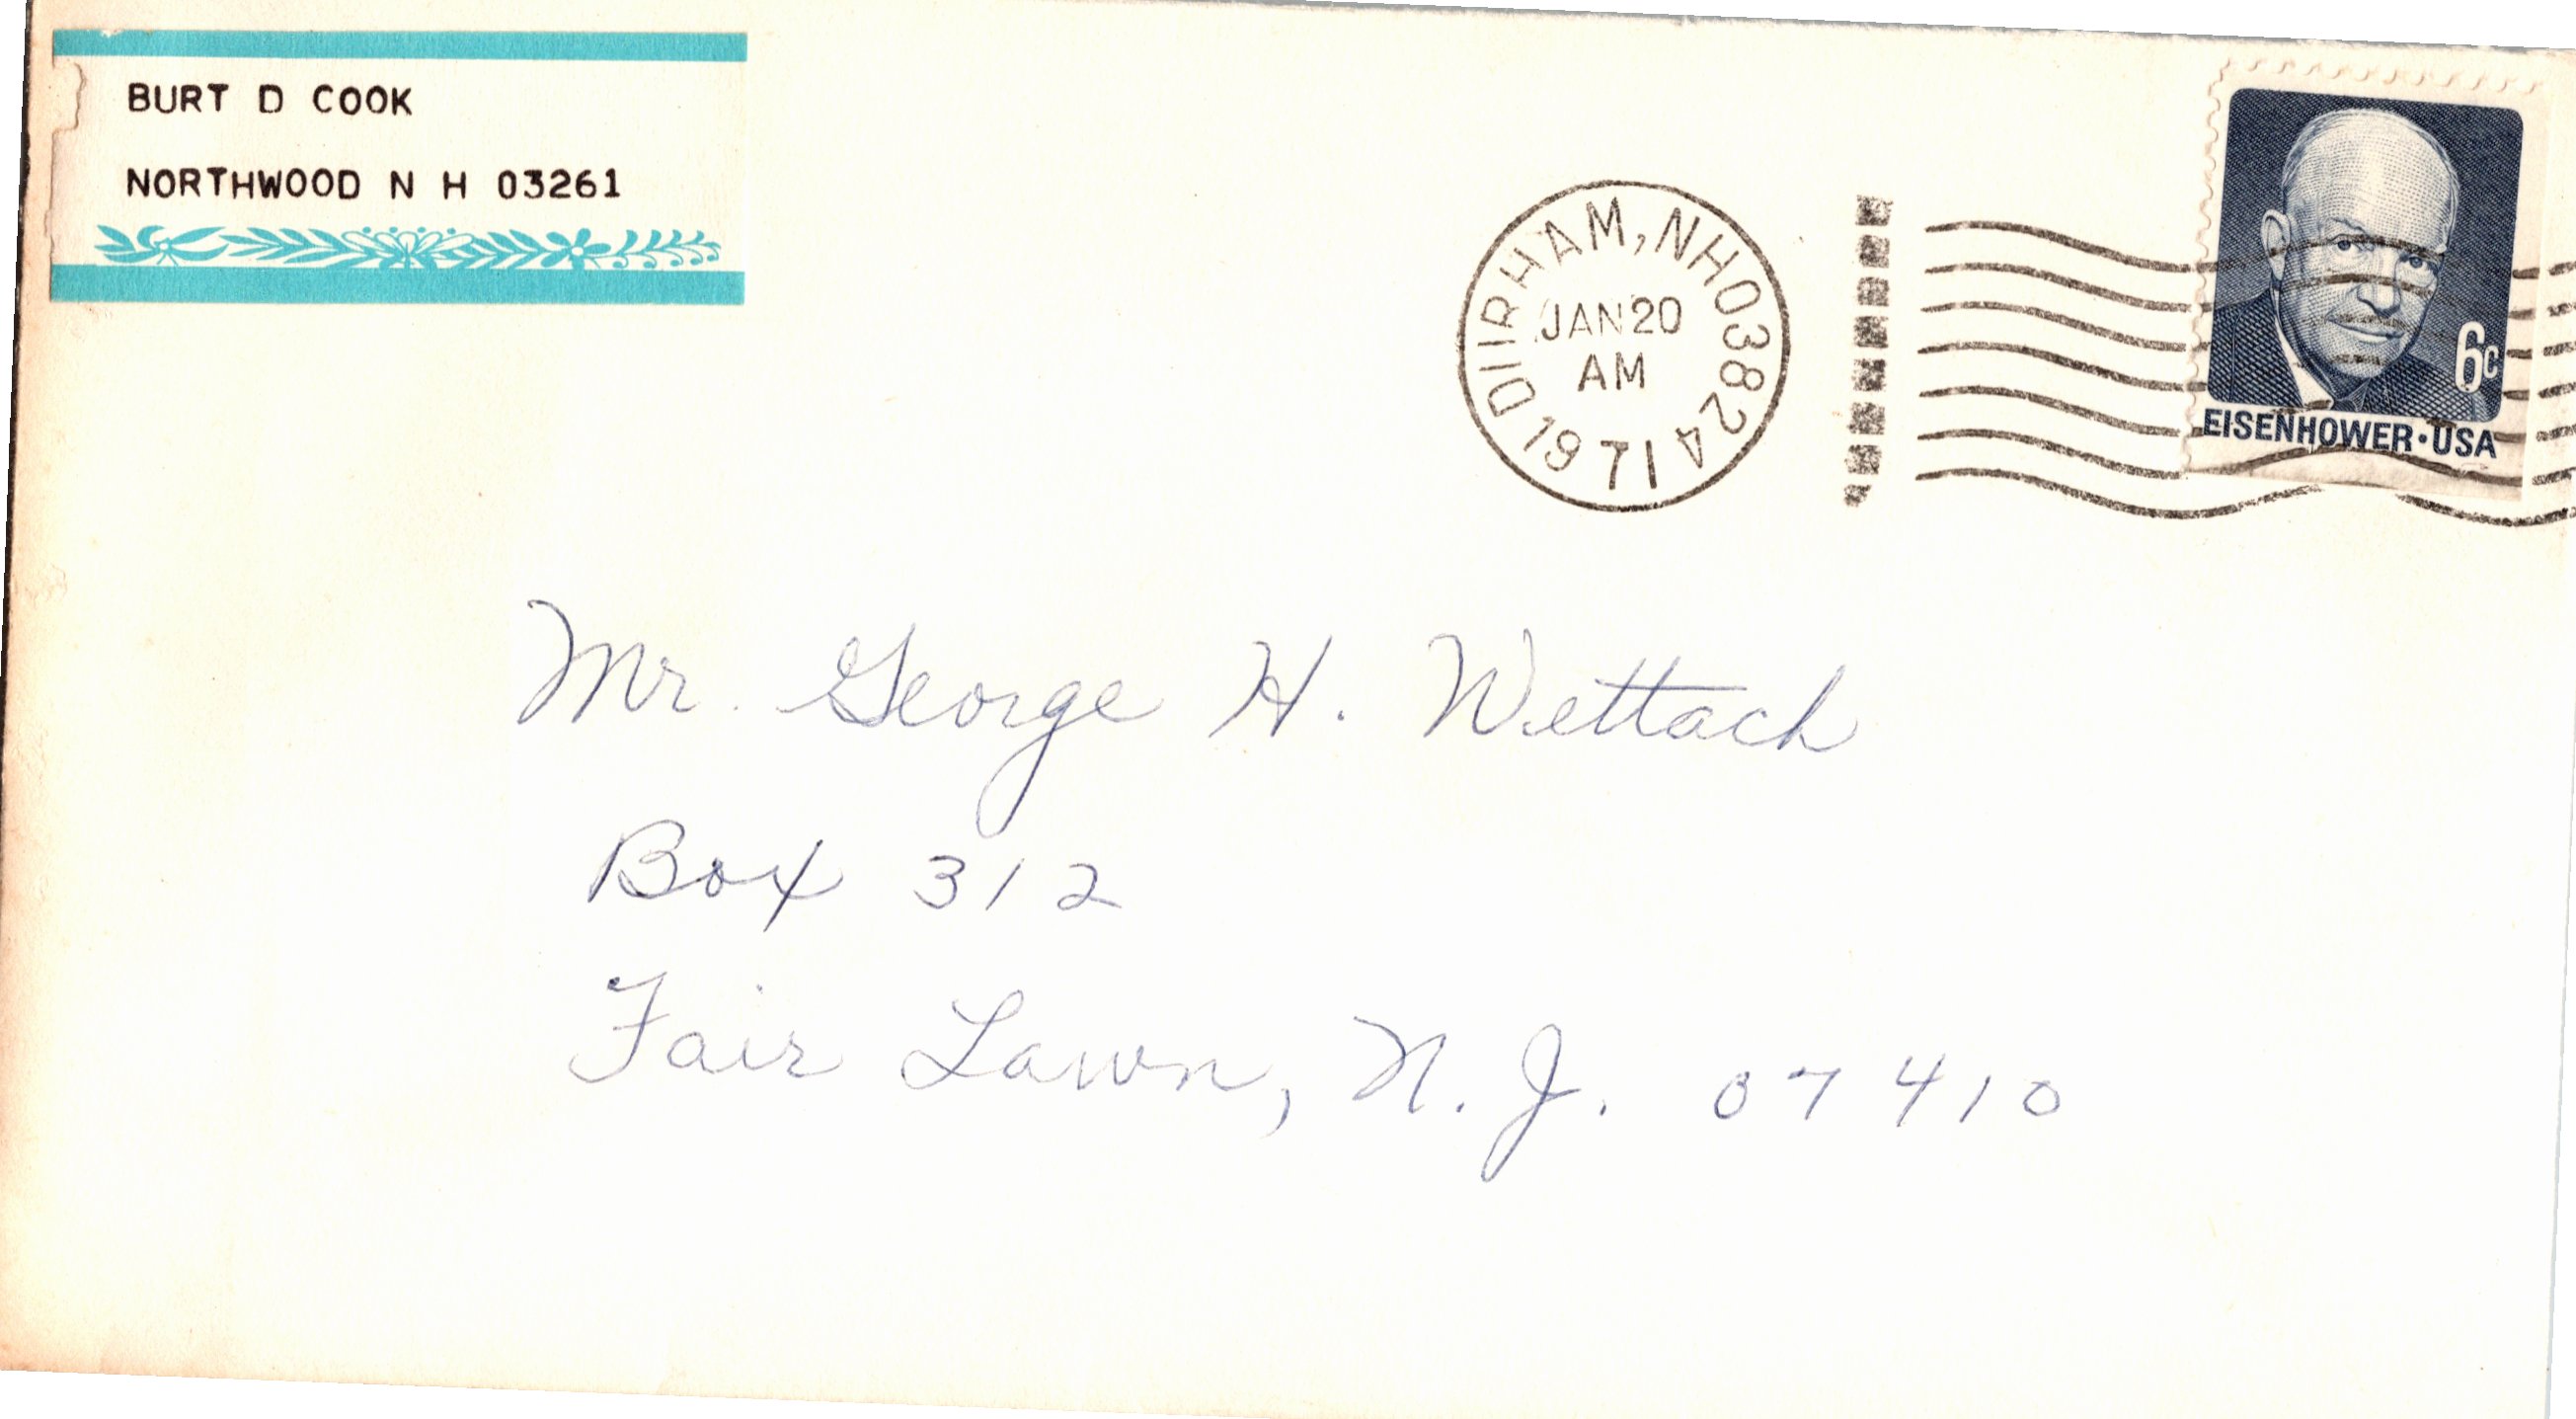 BURT D COOK
NORTHWOOD N H 03261
DURHAM, NH 03824
JAN 20
AM
1971
6c
EISENHOWER·USA
Mr. George H. Wettach
Box 312
Fair Lawn, N. J. 07410